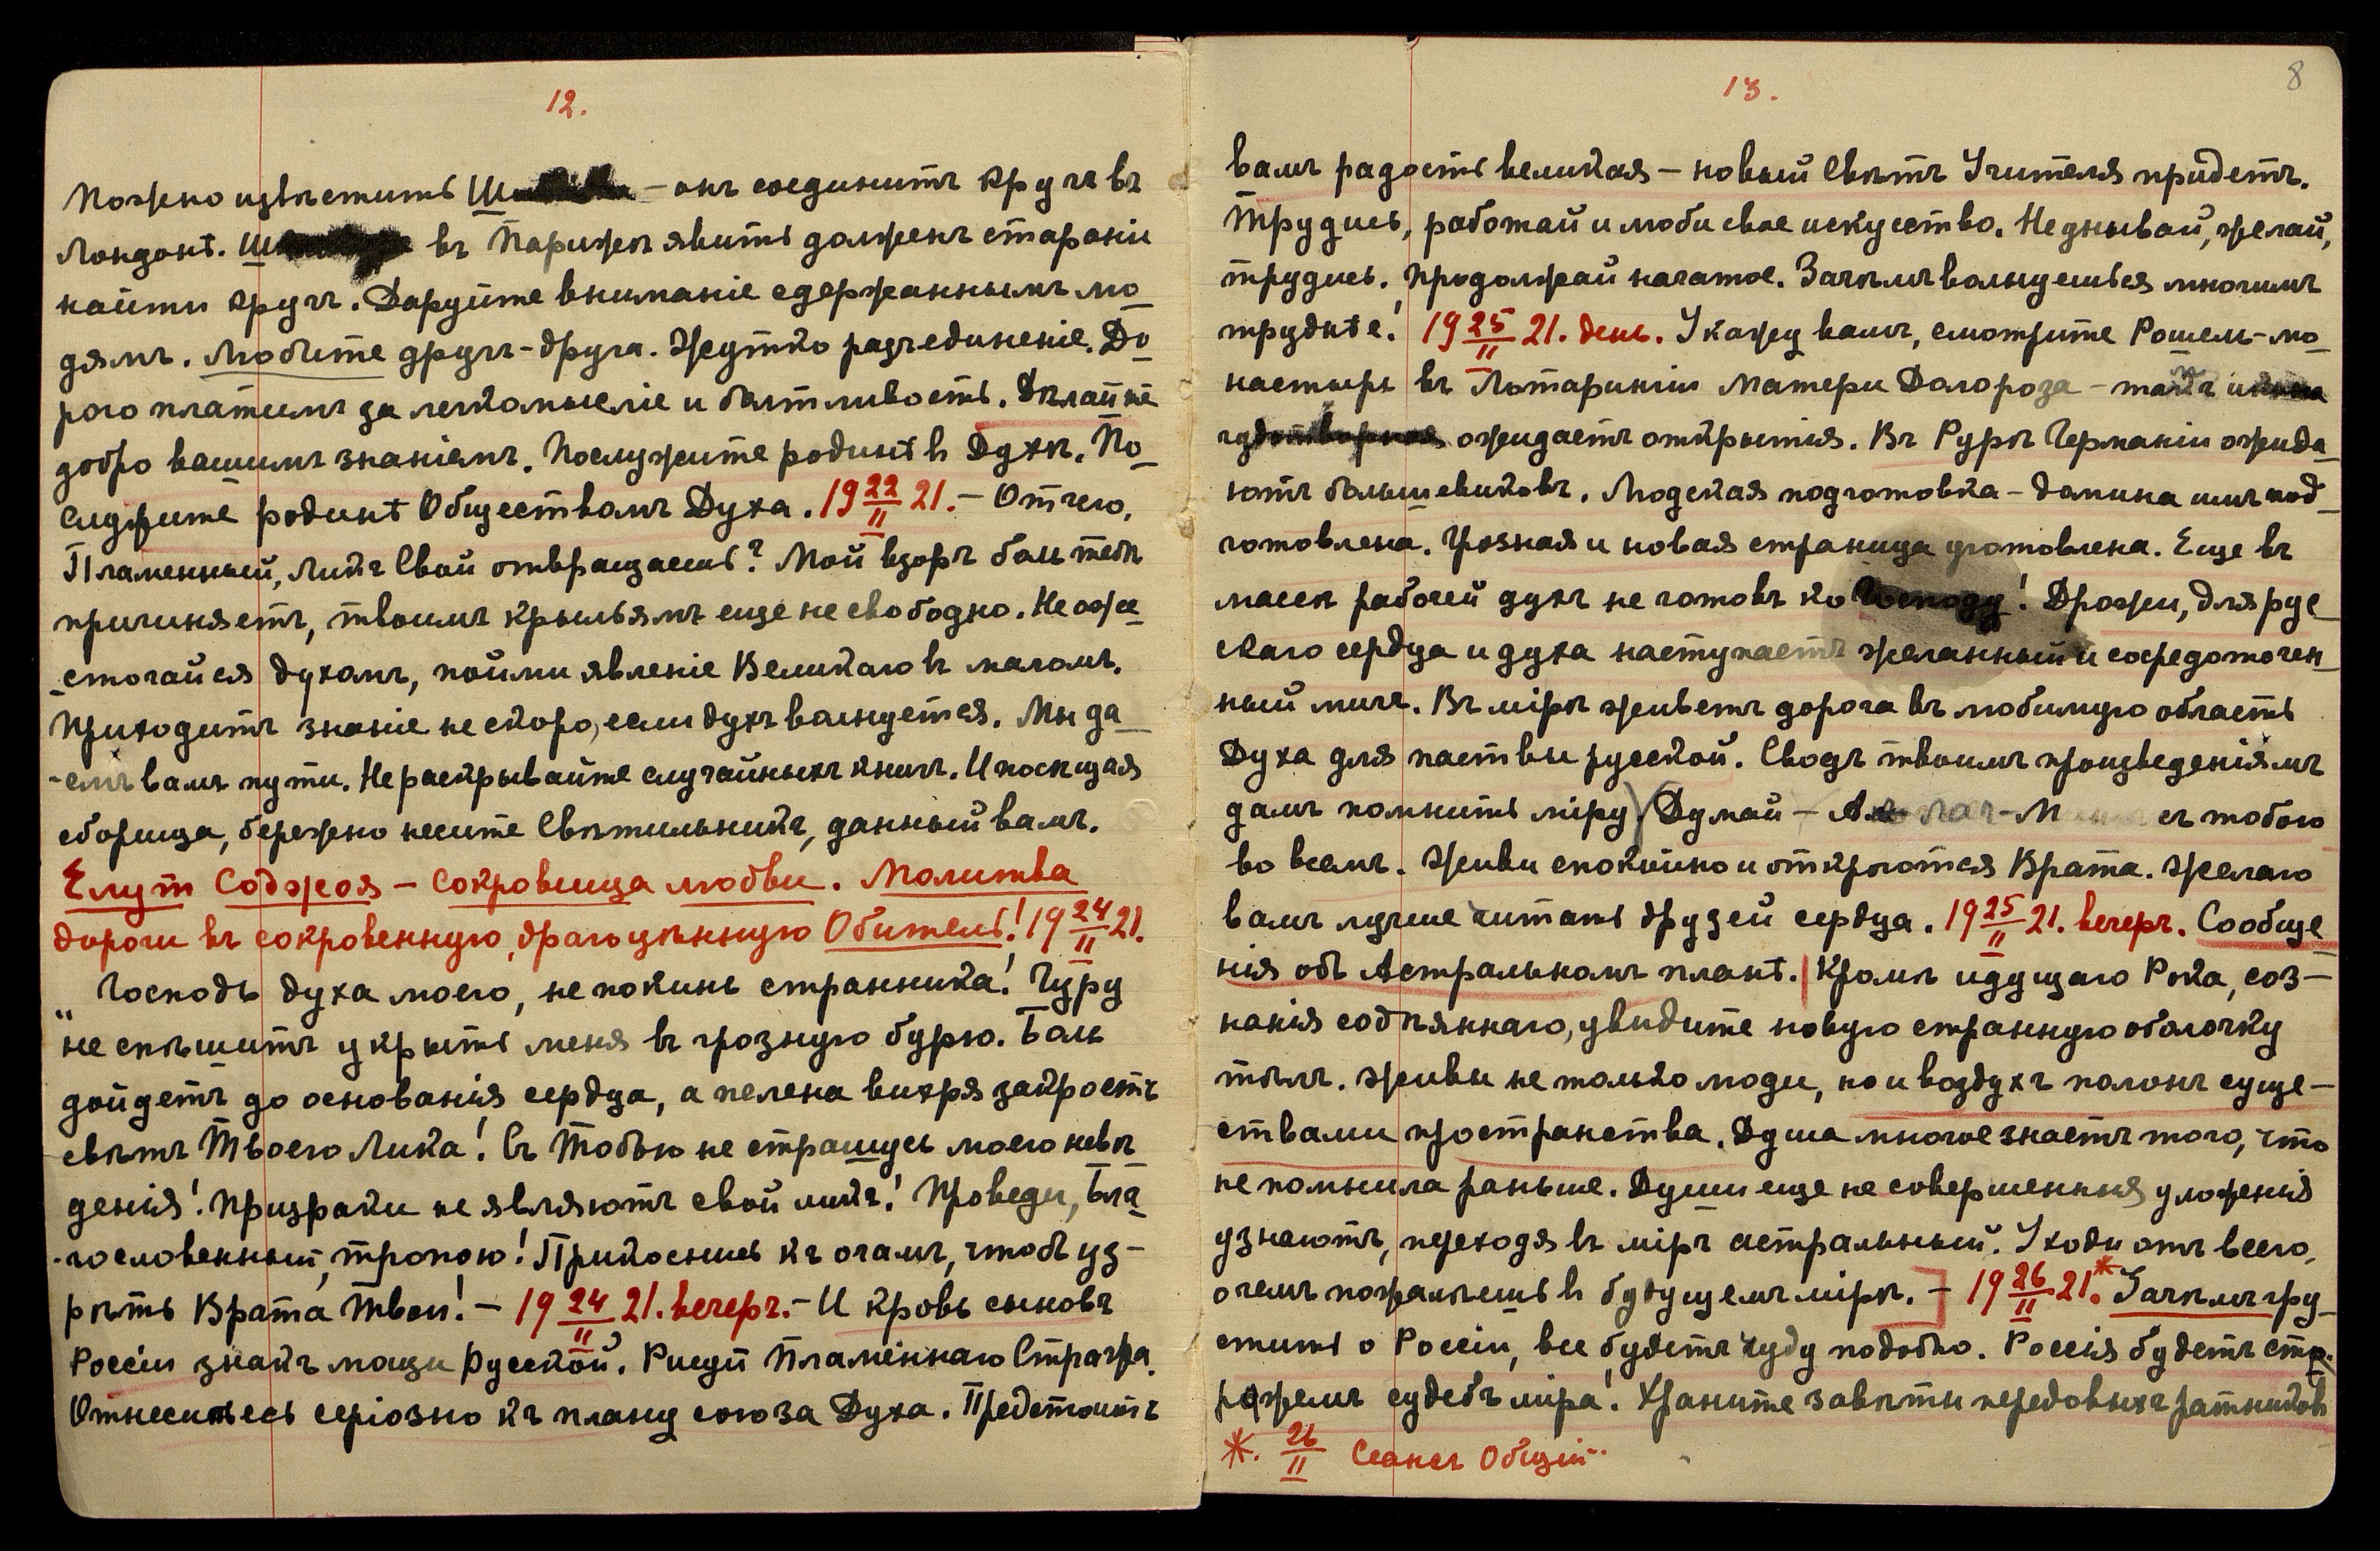 12.
Можно извѣстить – онъ соединитъ кругъ въ
Лондонѣ. въ Парижѣ явить долженъ старанія
найти кругъ. Даруйте вниманіе сдержаннымъ лю_
дямъ. Любите другъ-друга. Жутко разъединеніе. До_
рого платимъ за легкомысліе и болтливость. Дѣлайте
добро вашимъ знаніемъ. Послужите родинѣ в Духѣ. По_
служите родинѣ Обществамъ Духа. 19 22/II 21. – Отчего,
Пламенный, Ликъ Свой отвращаешь? Мой взоръ боль тебѣ
причиняетъ, твоимъ крыльямъ еще не свободно. Не оже_
_сточайся духомъ, пойми явленіе Великаго въ маломъ.
Приходитъ знаніе не скоро, если духъ волнуется. Мы да_
-емъ вамъ пути. Не раскрывайте случайныхъ книгъ. И посѣщая
сборища, бережно несите Свѣтильникъ, данный вамъ.
Елут Соджоя – Сокровища любви. Молитва
дороги въ сокровенную, драгоцѣнную Обитель! 19 24/II 21.
„Господь духа моего, не покинь странника! Гуру
не спѣшитъ укрыть меня въ грозную бурю. Боль
дойдетъ до основанія сердца, а пелена вихря закроетъ
свѣтъ Твоего Лика! Съ Тобою не страшусь моего невѣ
денія! Призраки не являютъ свой ликъ! Проведи, Бла_
-гословенный, тропою! Прикоснись къ очамъ, чтобъ уз-
рѣть Врата Твои! – 19 24/II 21. вечеръ. – И кровь сыновъ
Россіи знакъ мощи русской. Рищи Пламеннаго Стратера.
Отнеситесь серіозно къ плану союза Духа. Предстоитъ
13.
8
вамъ радость великая – новый Свѣтъ Учителя придетъ.
Трудись, работай и люби свое искусство. Не унывай, желай,
трудись. Продолжай начатое. Зачѣмъ волнуешься многимъ
труднѣе! 19 25/II 21. день. Укажу вамъ, смотрите Рошель-мо_
настырь въ Лотарингіи Матери Долороза – такъ икона
чудотворная ожидаетъ открытія. Въ Рурѣ Германіи ожида_
ютъ большевиковъ. Людская подготовка – долина имъ под_
готовлена. Грозная и новая страница уготовлена. Еще въ
массѣ рабочей духъ не готовъ ко Господу! Дрожи, для рус_
скаго сердца и духа наступаетъ желанный и сосредоточен_
ный мигъ. Въ мірѣ живетъ дорога въ любимую область
Духа для паствы русской. Сводъ твоимъ произведеніямъ
дамъ помнить міру) Думай – съ тобою
во всемъ. Живи спокойно и откроются Врата. Желаю
вамъ лучше читать друзей сердца. 19 25/II 21. вечеръ. Сообще
нія объ Астральномъ планѣ. | Кромѣ идущаго Рока, соз–
нанія содѣяннаго, увидите новую странную оболочку
тѣлъ. Живы не только люди, но и воздухъ полонъ суще–
ствами пространства. Душа многое знаетъ того, что
не помнила раньше. Души еще не совершенныя уложенія
узнаютъ, переходя въ міръ астральный. Уходи отъ всего,
о чемъ пожалѣешь в будущемъ мірѣ. – ] 19 26/II 21.* Зачѣмъ гру_
стить о Россіи, все будетъ чуду подобно. Россія будетъ сто.
рожемъ судебъ міра! Храните завѣты передовыхъ ратниковъ
*. 26/II Сеансъ Общій.